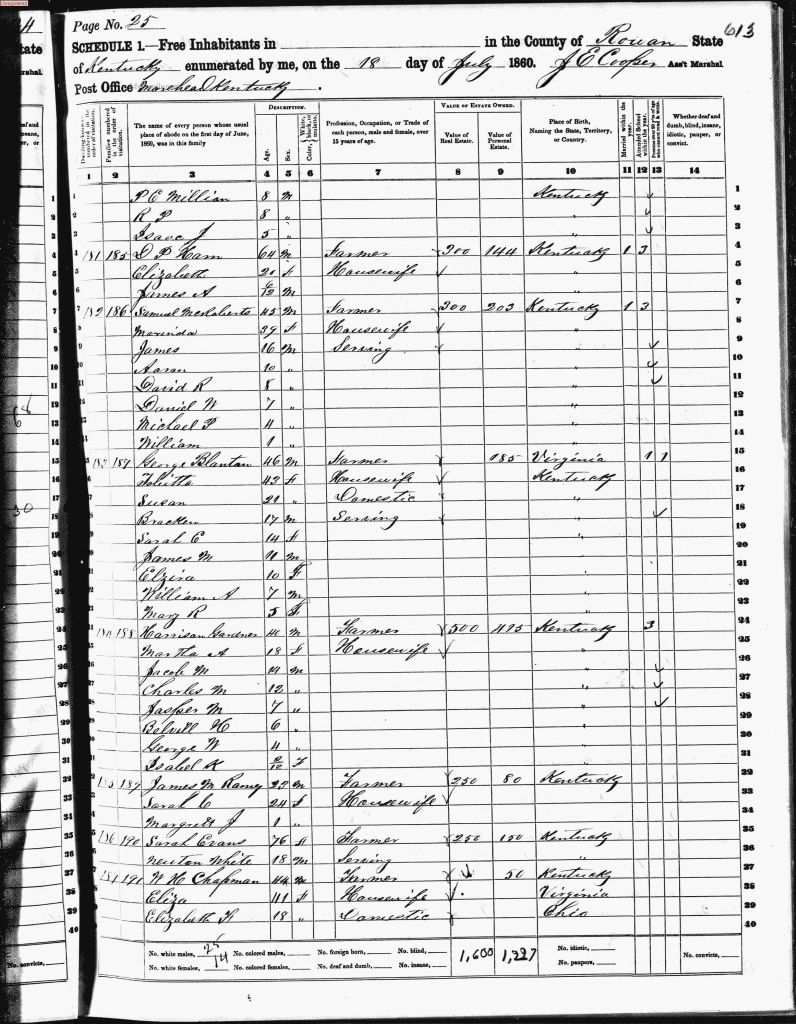 Page No. 25
613
SCHEDULE 1.—Free Inhabitants in in the County of Rowan State
of Kentucky enumerated by me, on the 18 day of July 1860. J E Cooper Ass't Marshal
Post Office Morehead Kentucky.
DESCRIPTION. VALUE OF ESTATE OWNED.
Dwelling-houses numbered in the order of visitation. Families numbered in the order of visitation. The name of every person whose usual place of abode on the first day of June, 1860, was in this family Age. Sex. Color, White, black, or mulatto. Profession, Occupation, or Trade of each person, male and female, over 15 years of age. Value of Real Estate. Value of Personal Estate. Place of Birth, Naming the State, Territory, or Country. Married within the year. Attended School within the year. Persons over 20 y'rs of age who cannot read & write. Whether deaf and dumb, blind, insane, idiotic, pauper, or convict.
1 2 3 4 5 6 7 8 9 10 11 12 13 14
1 P E Millian 8 M Kentucky 1
2 R P 8 " " 2
3 Isaac J 5 " " 3
4 181 185 D P Ham 64 M Farmer 300 144 Kentucky 1 3 4
5 Elizabeth 20 F Housewife " 5
6 James A /12 M " 6
7 182 186 Samuel McRoberts 45 M Farmer 300 203 Kentucky 1 3 7
8 Morinda 39 F Housewife " 8
9 James 16 M Serving " 9
10 Aaron 10 " " 10
11 David R 8 " " 11
12 Daniel W 7 " " 12
13 Michael P 4 " " 13
14 William 1 " " 14
15 183 187 George Blanton 46 M Farmer 185 Virginia 1 1 15
16 43 F Housewife Kentucky 16
17 Susan 21 " Domestic " 17
18 Bracken 17 M Serving " 18
19 Sarah E 14 F " 19
20 James M 11 M " 20
21 Elzira 10 F " 21
22 William A 7 M " 22
23 Mary R 5 F " 23
24 184 188 Harrison Gardner 40 M Farmer 500 495 Kentucky 3 24
25 Martha A 18 F Housewife " 25
26 Jacob M 14 M " 26
27 Charles M 12 " " 27
28 Jasper M 7 " " 28
29 Belvill H 6 " " 29
30 George W 4 " " 30
31 Isabel K /12 F " 31
32 185 189 James M Ramy 23 M Farmer 250 80 Kentucky 32
33 Sarah C 24 F Housewife " 33
34 Margrett J 1 " " 34
35 186 190 Sarah Evans 76 F Farmer 250 150 Kentucky 35
36 Newton White 18 M Serving " 36
37 187 191 W H Chapman 44 M Farmer 50 Kentucky 37
38 Eliza 41 F Housewife Virginia 38
39 Elizabeth F 18 " Domestic Ohio 39
40 40
No. white males, 25 No. colored males, No. foreign born, No. blind, 1,600 1,227 No. idiotic, No. convicts,
No. white females, 14 No. colored females, No. deaf and dumb, No. insane, No. paupers,